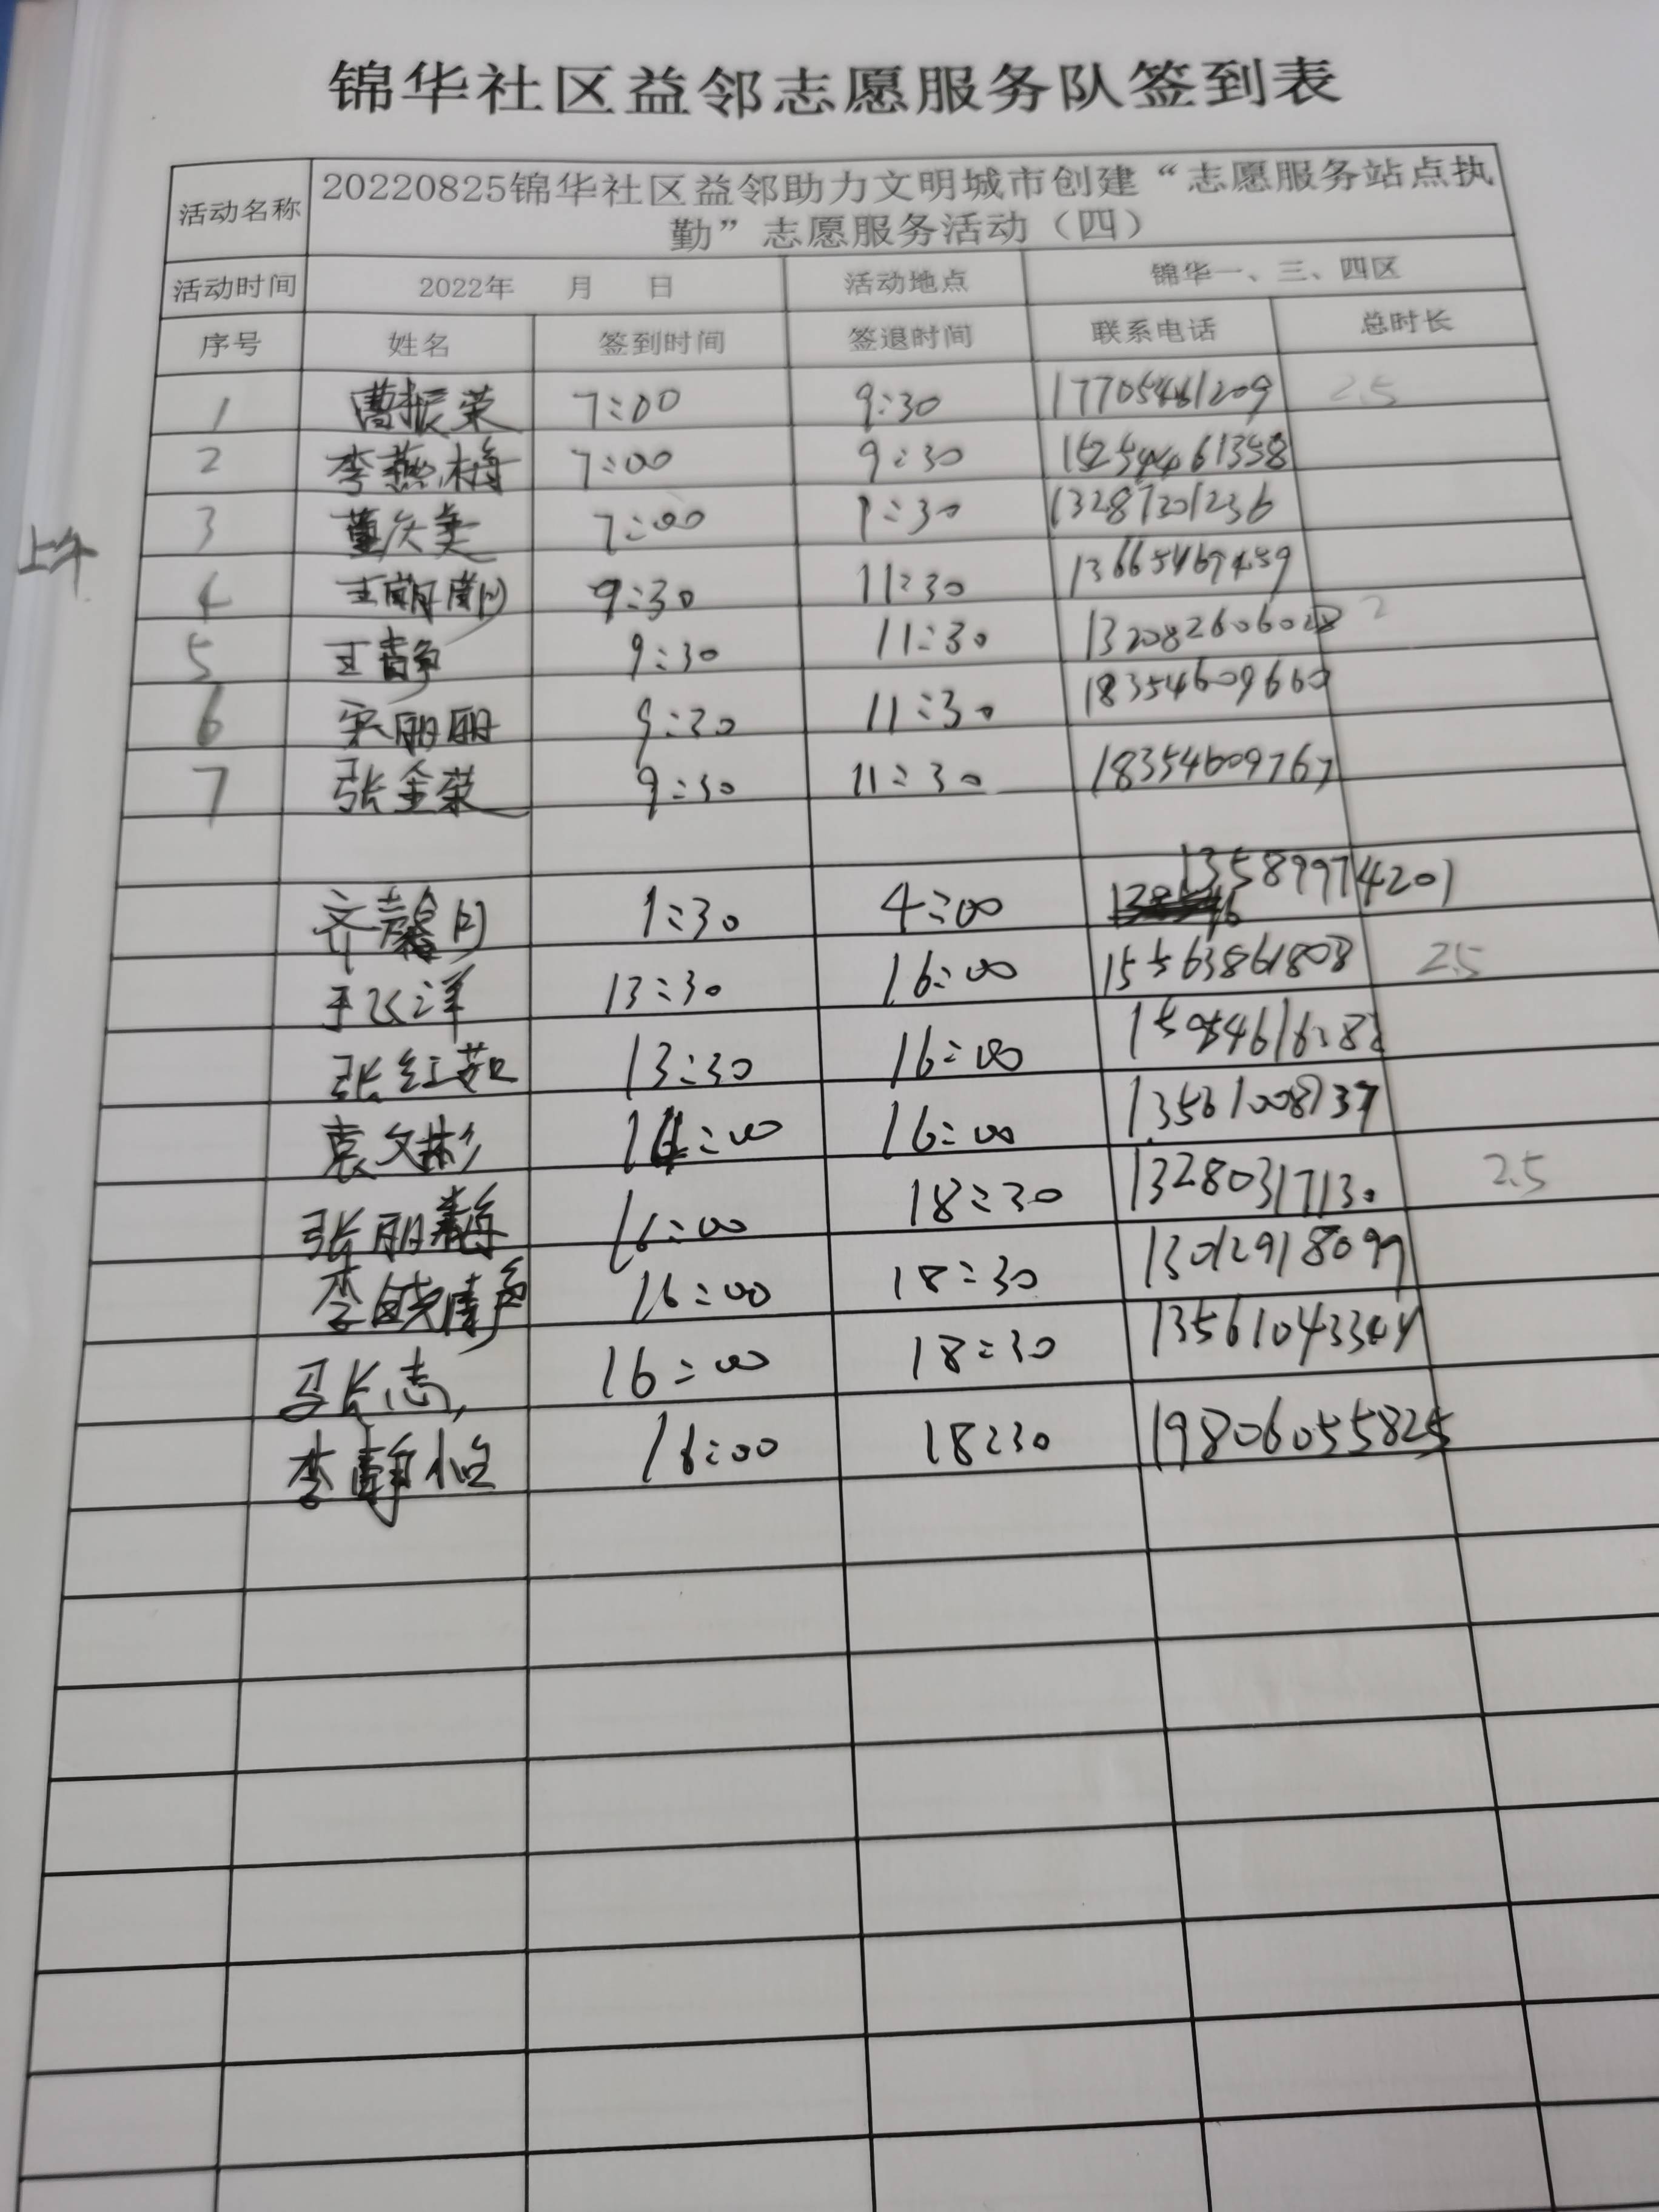 锦华社区益邻志愿服务队签到表
活动名称 20220825锦华社区益邻助力文明城市创建“志愿服务站点执
勤”志愿服务活动（四）
活动时间 2022年 月 日 活动地点 锦华一、三、四区
序号 姓名 签到时间 签退时间 联系电话 总时长
1 曹振荣 7:00 9:30 17705461209 2.5
2 李燕梅 7:00 9:30 15254461358
3 董庆美 7:00 9:30 13287301236
上午
4 9:30 11:30 13665469459
5 王静 9:30 11:30 2
6 宋丽丽 9:30 11:30 18354609660
7 张金荣 9:30 11:30 18354609767
齐馨 1:30 4:00 13589974201
于飞洋 13:30 16:00 15563861808 2.5
张红茹 13:30 16:00
袁文彬 14:00 16:00 13561008137
张丽 16:00 18:30 13280317130 2.5
李晓静 16:00 18:30 13012918099
马长志 16:00 18:30 13561043344
李静怡 16:00 18:30 19806055825